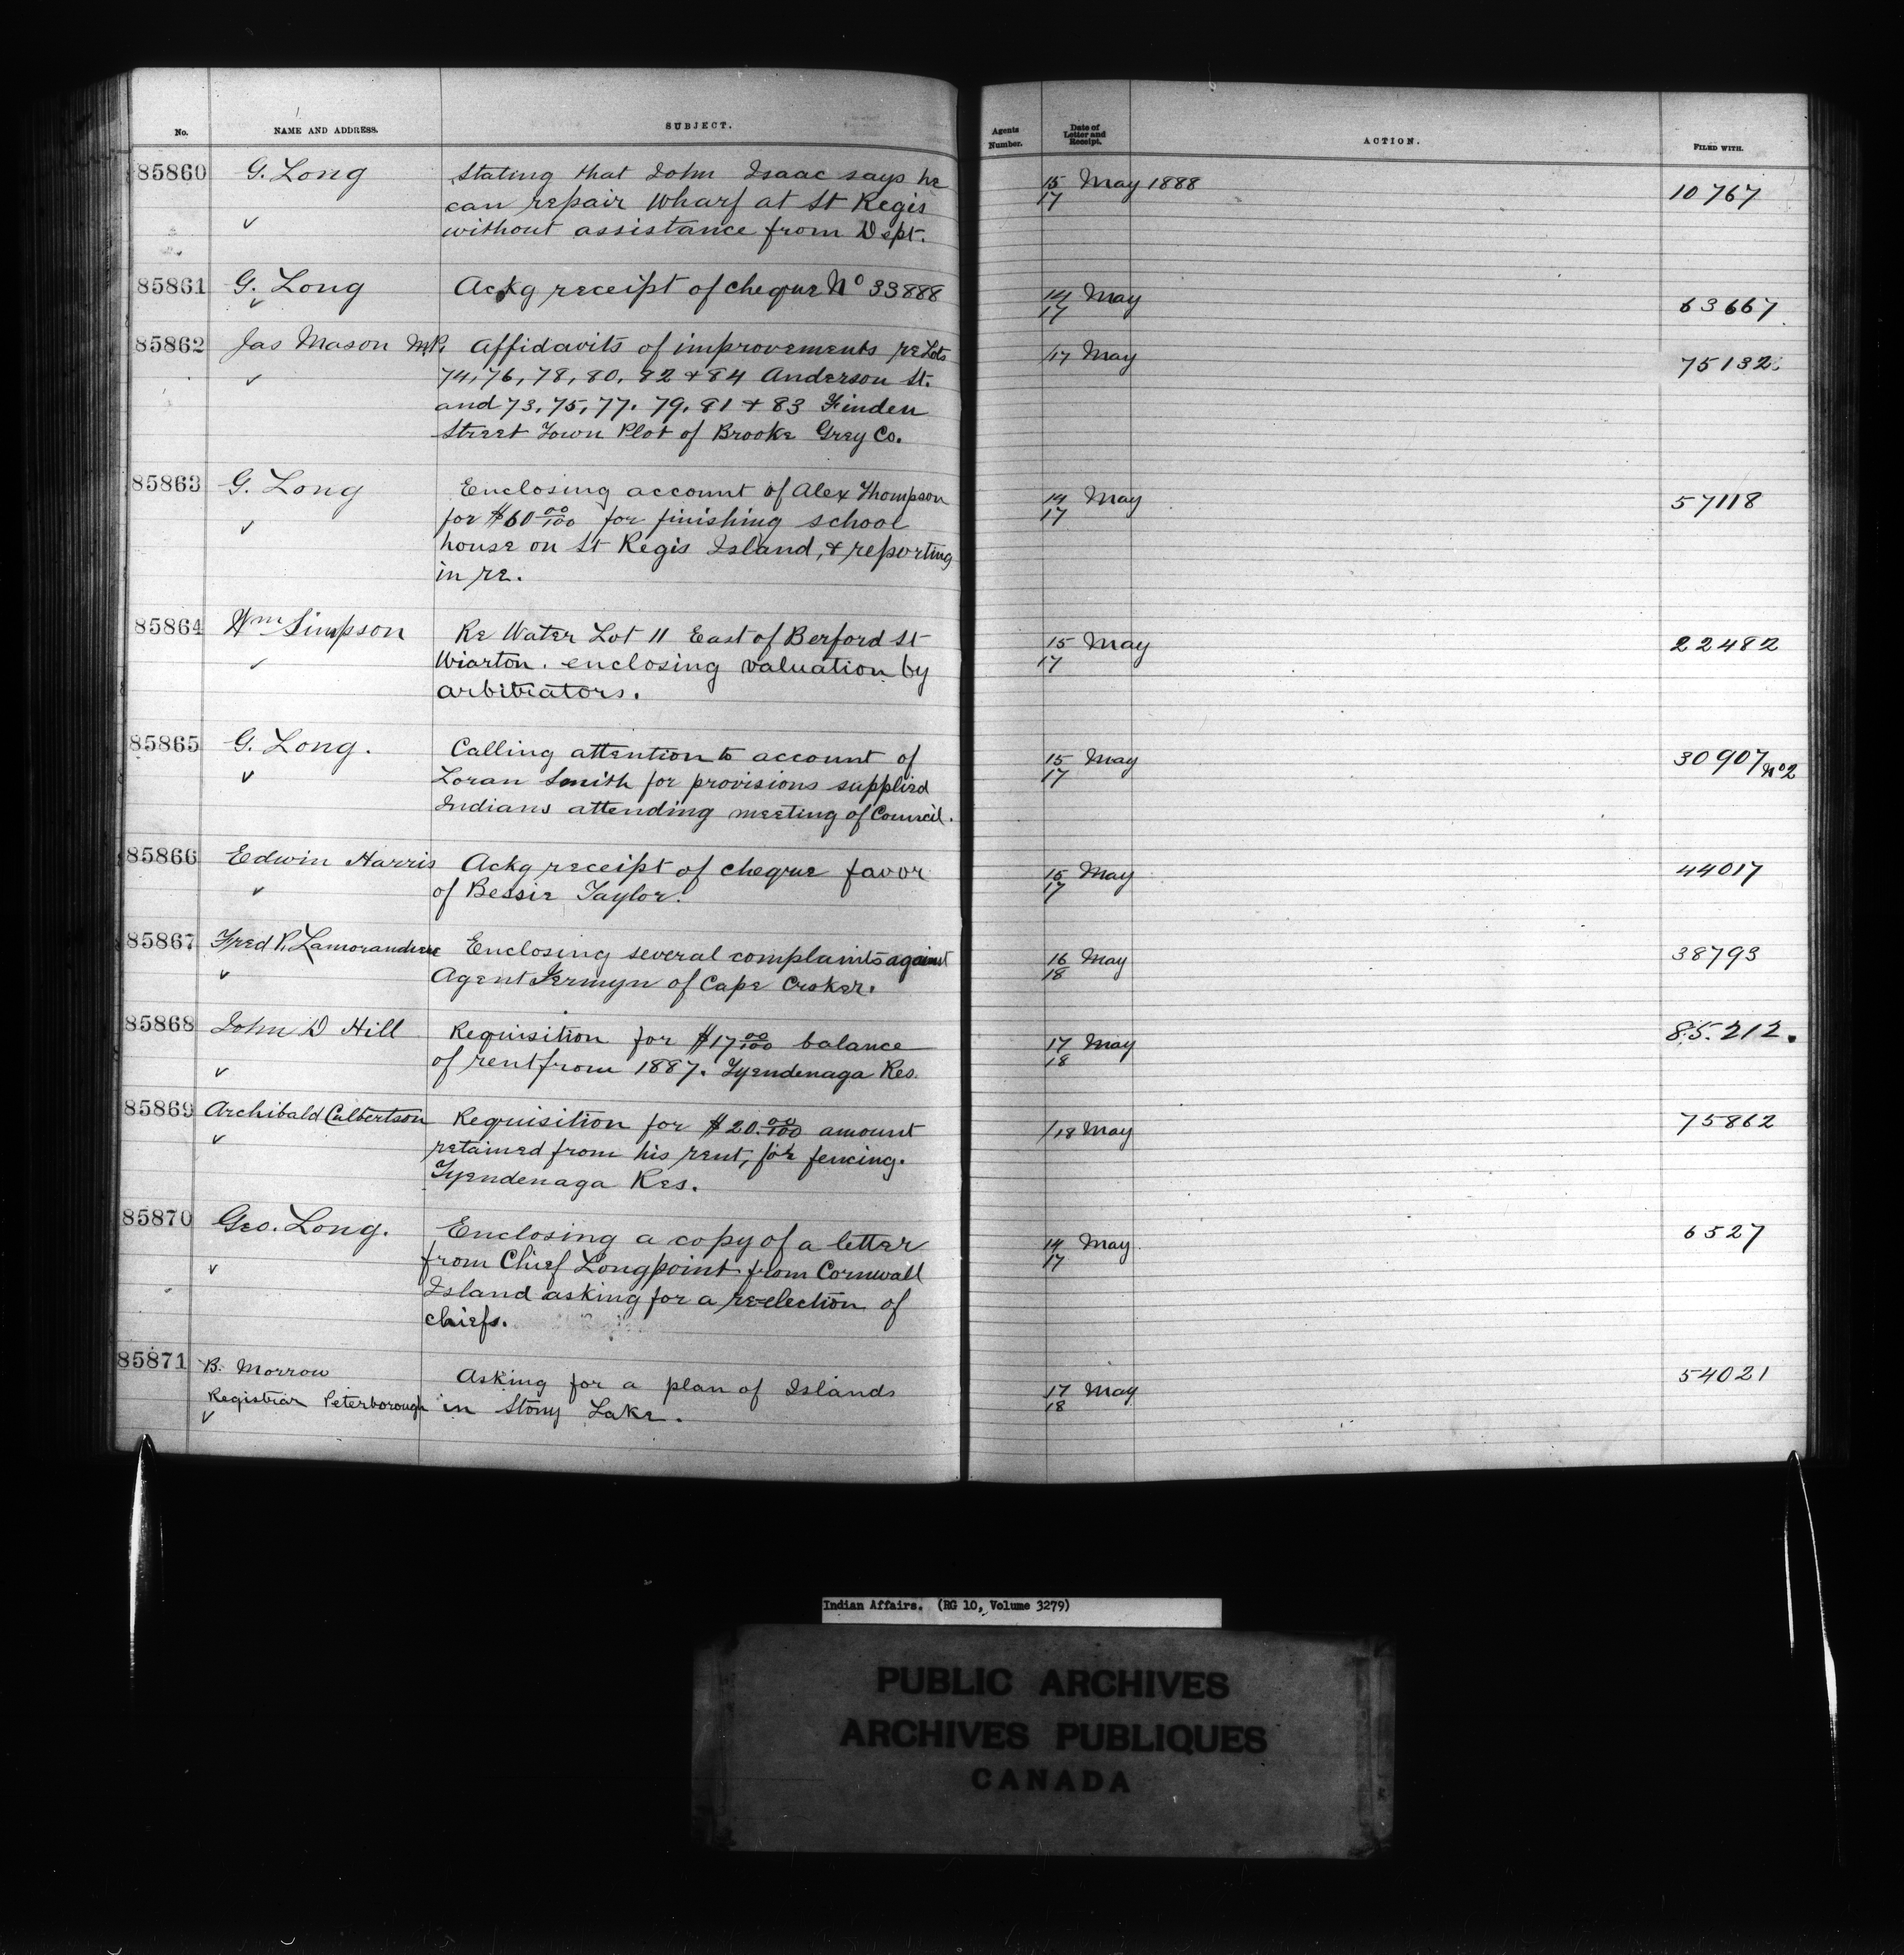 No. NAME AND ADDRESS. SUBJECT. Agents Number. Date of Letter and Receipt. ACTION. FILED WITH.
85860 G. Long Stating that John Isaac says he 15 May 1888 10767
can repair Wharf at St Regis 17
without assistance from Dept.
85861 G. Long Ackg receipt of cheque No 33888 14 May 63667
17
85862 Jas Mason M.P. Affidavits of improvements re Lots /17 May 75132
74, 76, 78, 80, 82 + 84 Anderson St.
and 73, 75, 77. 79, 81 + 83 Finden
Street Town Plot of Brooke Grey Co.
85863 G. Long Enclosing account of Alex Thompson 14 May 57118
for $60 00/100 for finishing school 17
house on St Regis Island, & reporting
in re.
85864 Wm Simpson Re Water Lot 11 East of Berford St 15 May 22482
Wiarton. enclosing valuation by 17
arbitrators.
85865 G. Long. Calling attention to account of 15 May 30907 No 2
Loran Smith for provisions supplied 17
Indians attending meeting of Council.
85866 Edwin Harris Ackg receipt of cheque favor 15 May 44017
of Bessie Taylor. 17
85867 Fred P. Lamorandiere Enclosing several complaints against 16 May 38793
Agent Jermyn of Cape Croker. 18
85868 John D Hill Requisition for $17 00/100 balance 17 May 85.212.
of rent from 1887. Tyendenaga Res. 18
85869 Archibald Culbertson Requisition for $20.00/100 amount /18 May 75862
retained from his rent, for fencing.
Tyendenaga Res.
85870 Geo. Long. Enclosing a copy of a letter 14 May 6527
from Chief Longpoint from Cornwall 17
Island asking for a re-election of
chiefs.
85871 B. Morrow Asking for a plan of Islands 17 May 54021
Registrar Peterborough in Stony Lake. 18
Indian Affairs. (RG 10, Volume 3279)
PUBLIC ARCHIVES
ARCHIVES PUBLIQUES
CANADA